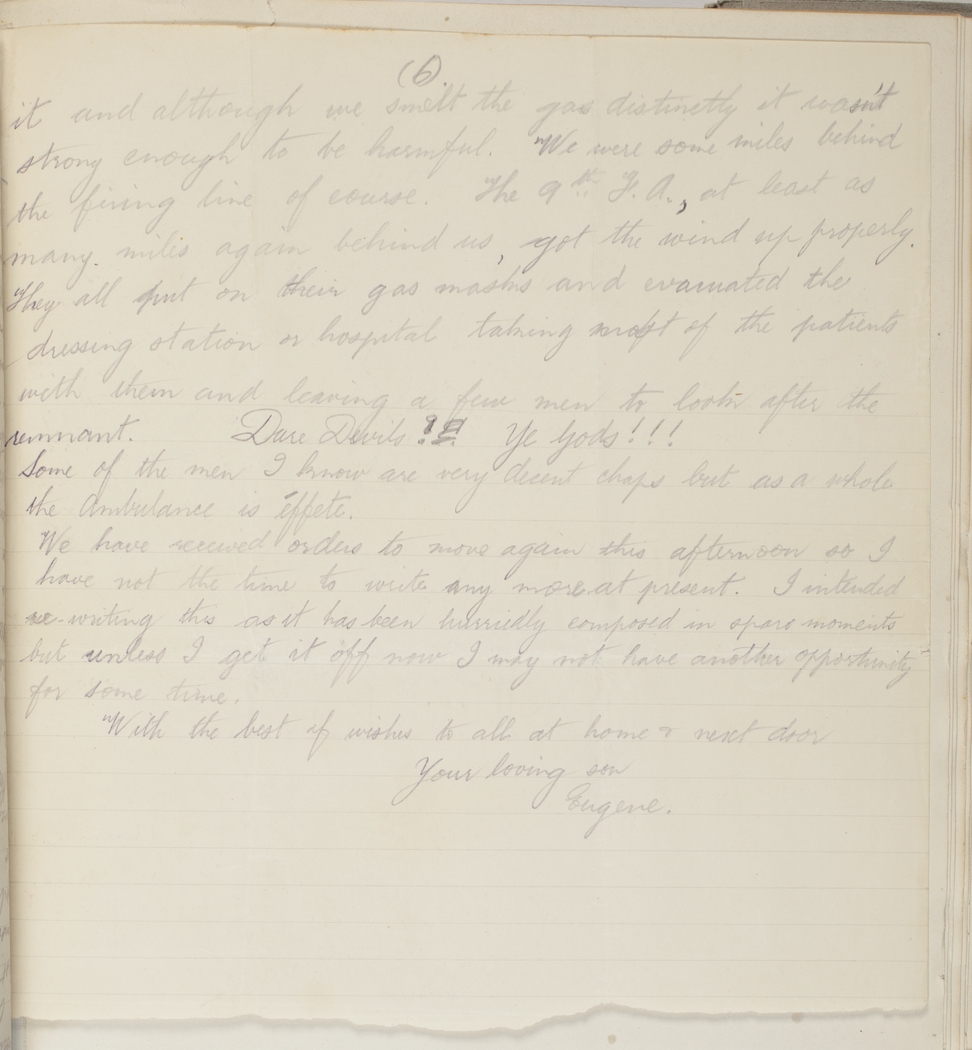 (6).
it and although we smelt the gas distinctly it wasn't
strong enough to be harmful. We were some miles behind
the firing line of course. The 9th F. A., at least as
many miles again behind us, got the wind up properly.
They all put on their gas masks and evacuated the
dressing station or hospital taking most of the patients
with them and leaving a few men to look after the
remnant. Dare Devils?!! Ye Gods!!!
Some of the men I know are very decent chaps but as a whole
the Ambulance is effete.
We have received orders to move again this afternoon so I
have not the time to write any more at present. I intended
re-writing this as it has been hurriedly composed in spare moments
but unless I get it off now I may not have another opportunity
for some time.
With the best of wishes to all at home & next door
Your loving son
Eugene.